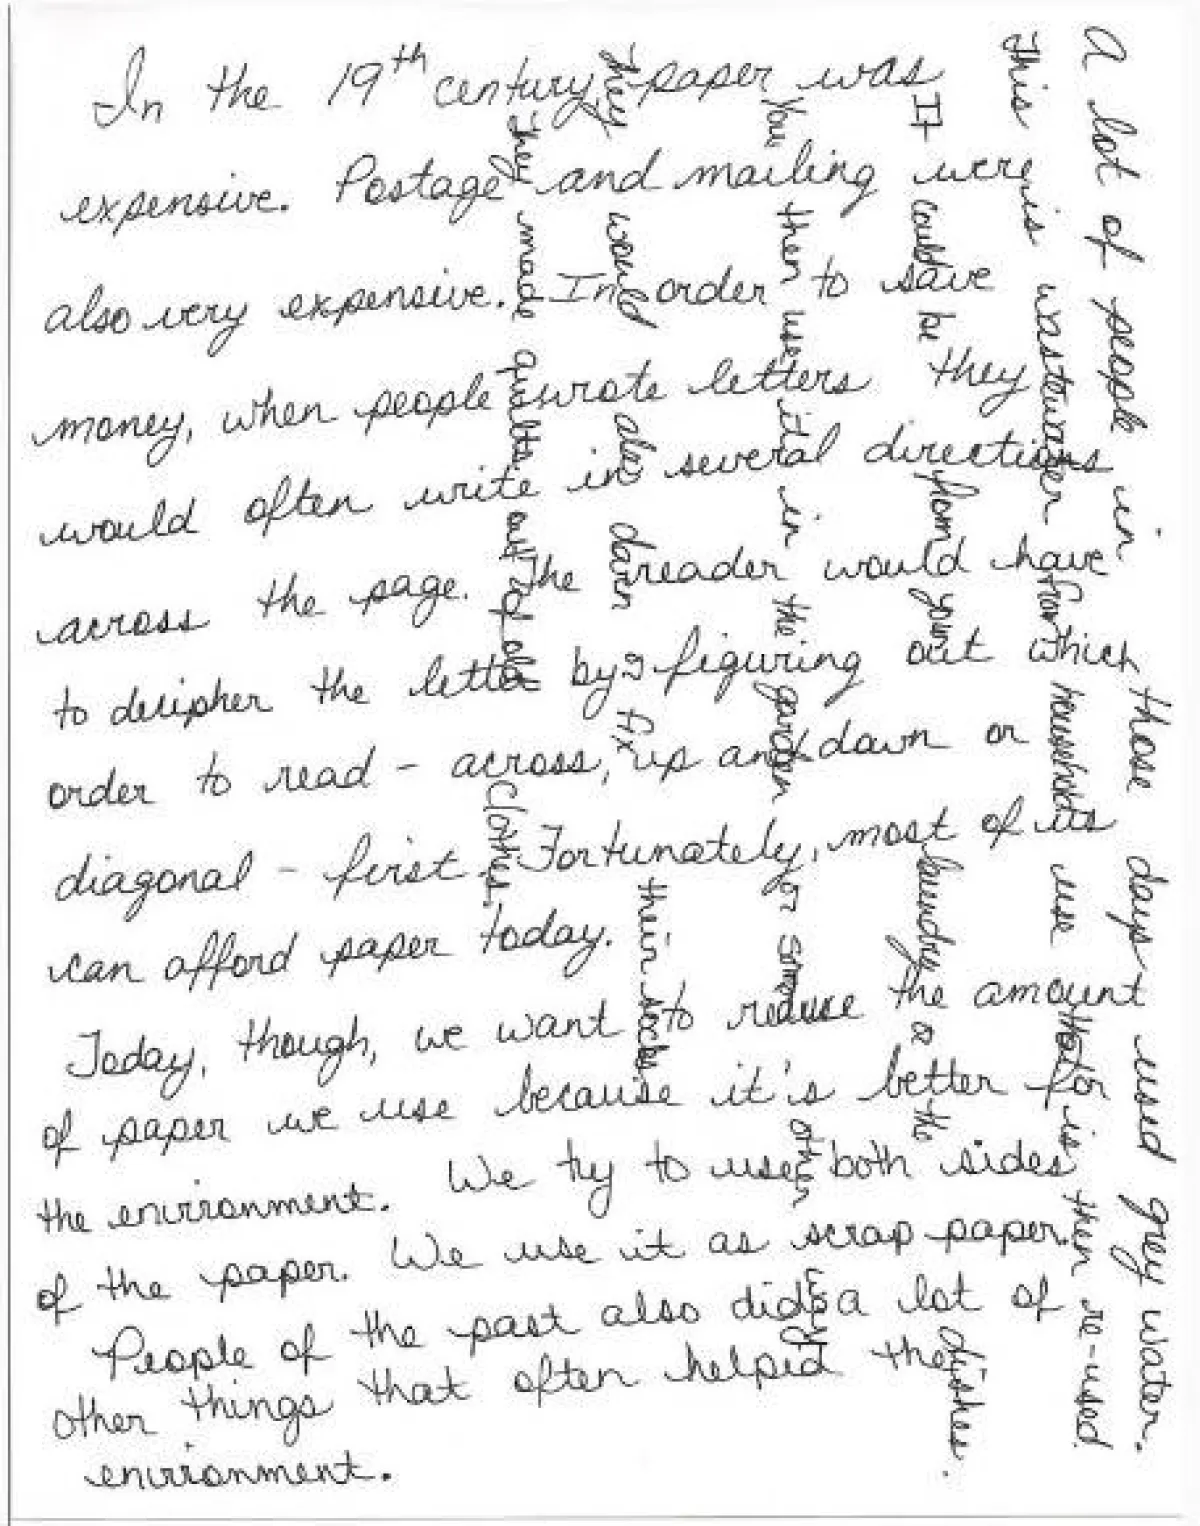 In the 19th century paper was
expensive. Postage and mailing were
also very expensive. In order to save
money, when people wrote letters they
would often write in several directions
across the page. The reader would have
to decipher the letter by figuring out which
order to read - across, up and down or
diagonal - first. Fortunately, most of us
can afford paper today.
Today, though, we want to reduce the amount
of paper we use because it's better for
the environment. We try to use both sides
of the paper. We use it as scrap paper.
People of the past also did a lot of
other things that often helped the
environment.
A lot of people in those days used grey water.
This is wastewater from households use that is then re-used.
It could be from your laundry or the dishes.
You then use it in the garden or some other way.
They would also darn & fix their socks.
They made quilts out of old clothes.